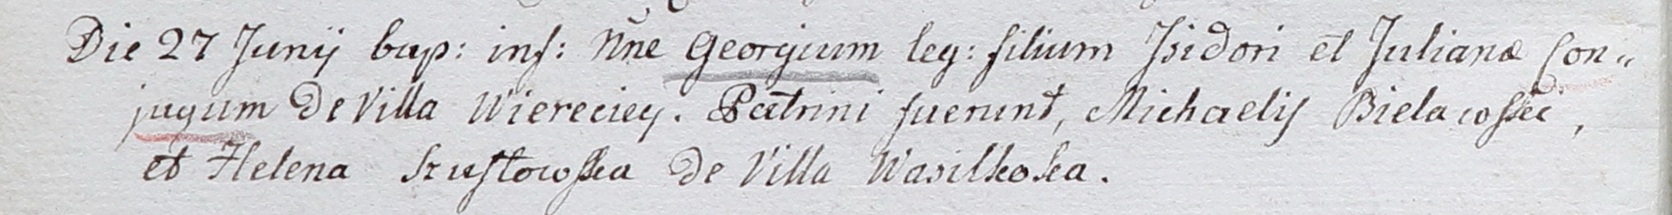 Die 27 Junij bap: inf: Nne Georgium leg: filium Isidori et Julianæ Con„
jugum De Villa Wiereciey. Patrini fuerunt, Michaelis Bielawski,
et Helena Szustowska De Villa Wasilkoska.